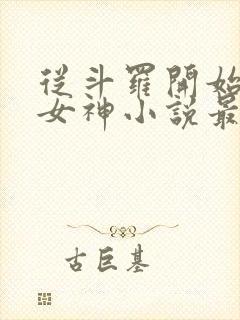 從斗羅開始
女神小説最
古巨基